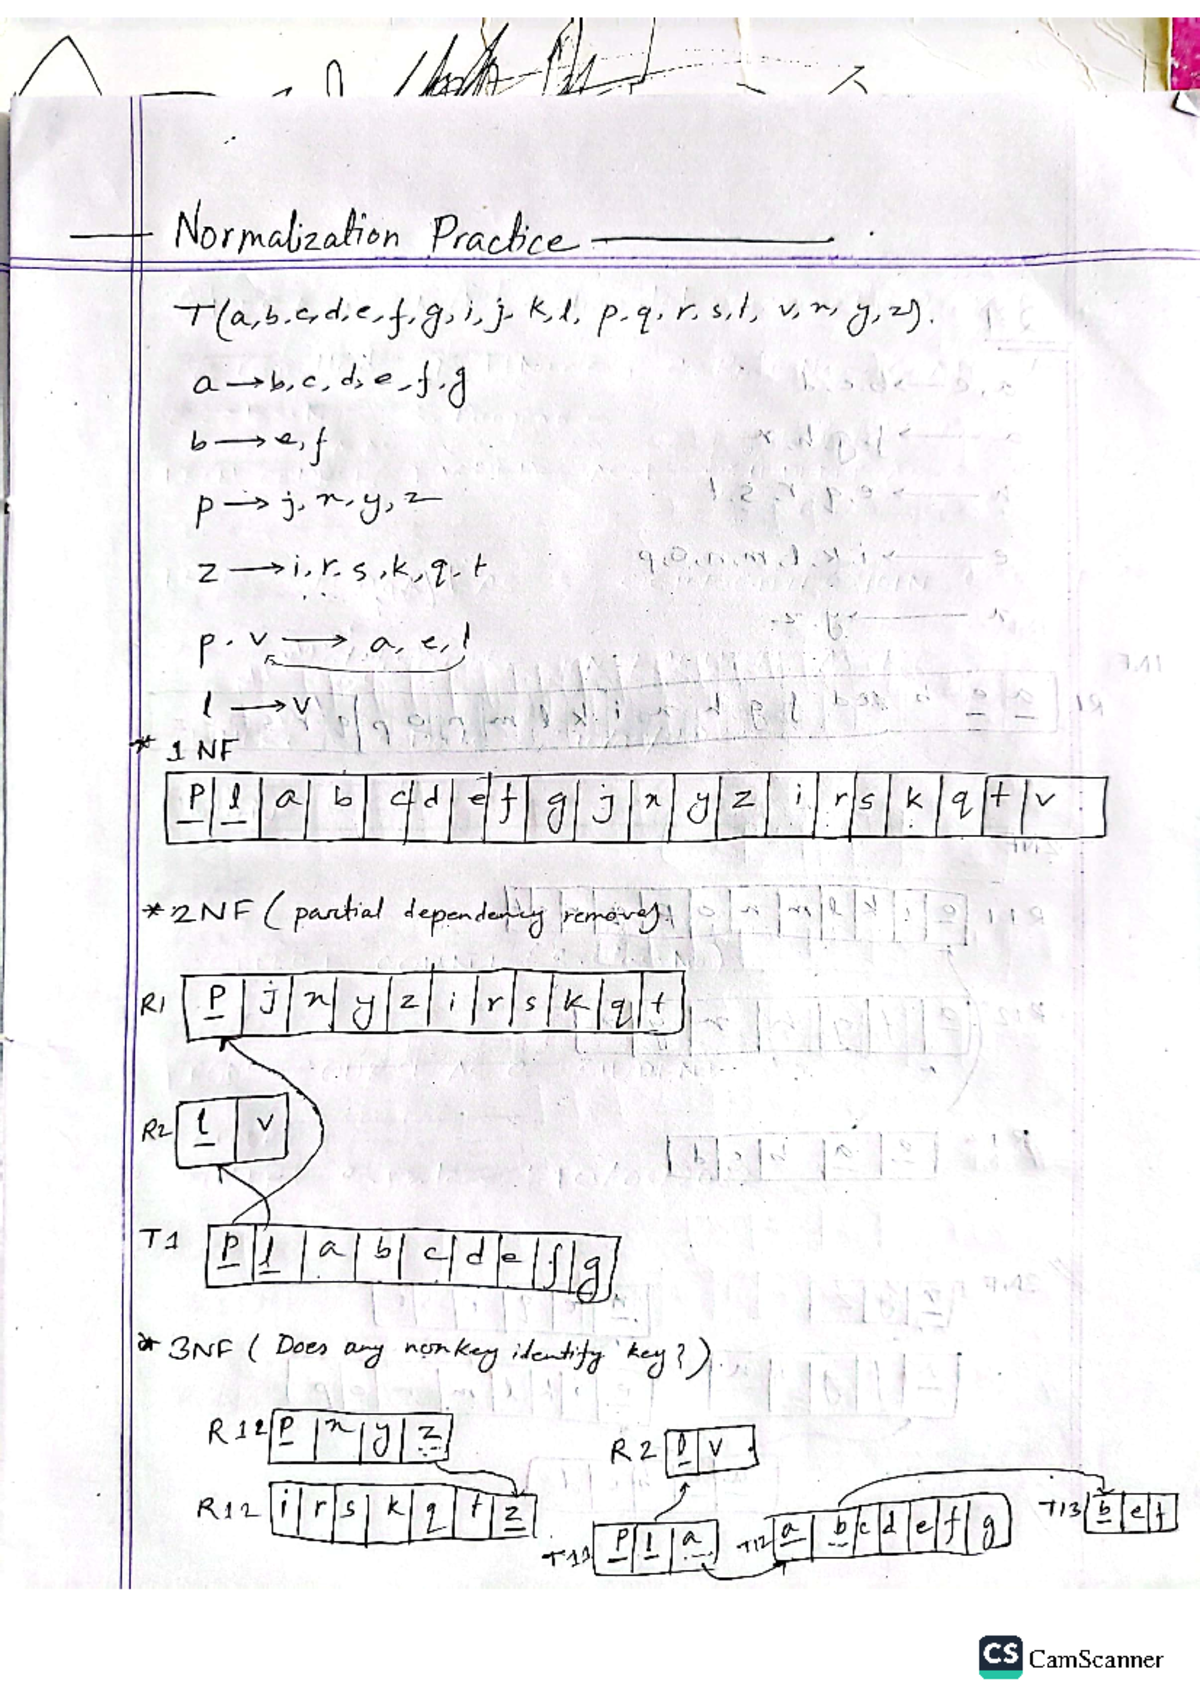 Normalization Practice
T(a,b,c,d,e,f,g,i,j,k,l,p,q,r,s,t,v,x,y,z).
a→b,c,d,e,f,g
b→e,f
p→j,x,y,z
z→i,r,s,k,q,t
p.v→a,e,l
l→v
* 1NF
P l a b c d e f g j x y z i r s k q t v
*2NF (partial dependency remove)
R1 P j x y z i r s k q t
R2 l v
T1 P l a b c d e f g
* 3NF (Does any nonkey identify key?)
R12 P x y z
R2 l v
R12 i r s k q t z
T11 P l a
T12 a b c d e f g
T13 b e f
CS CamScanner